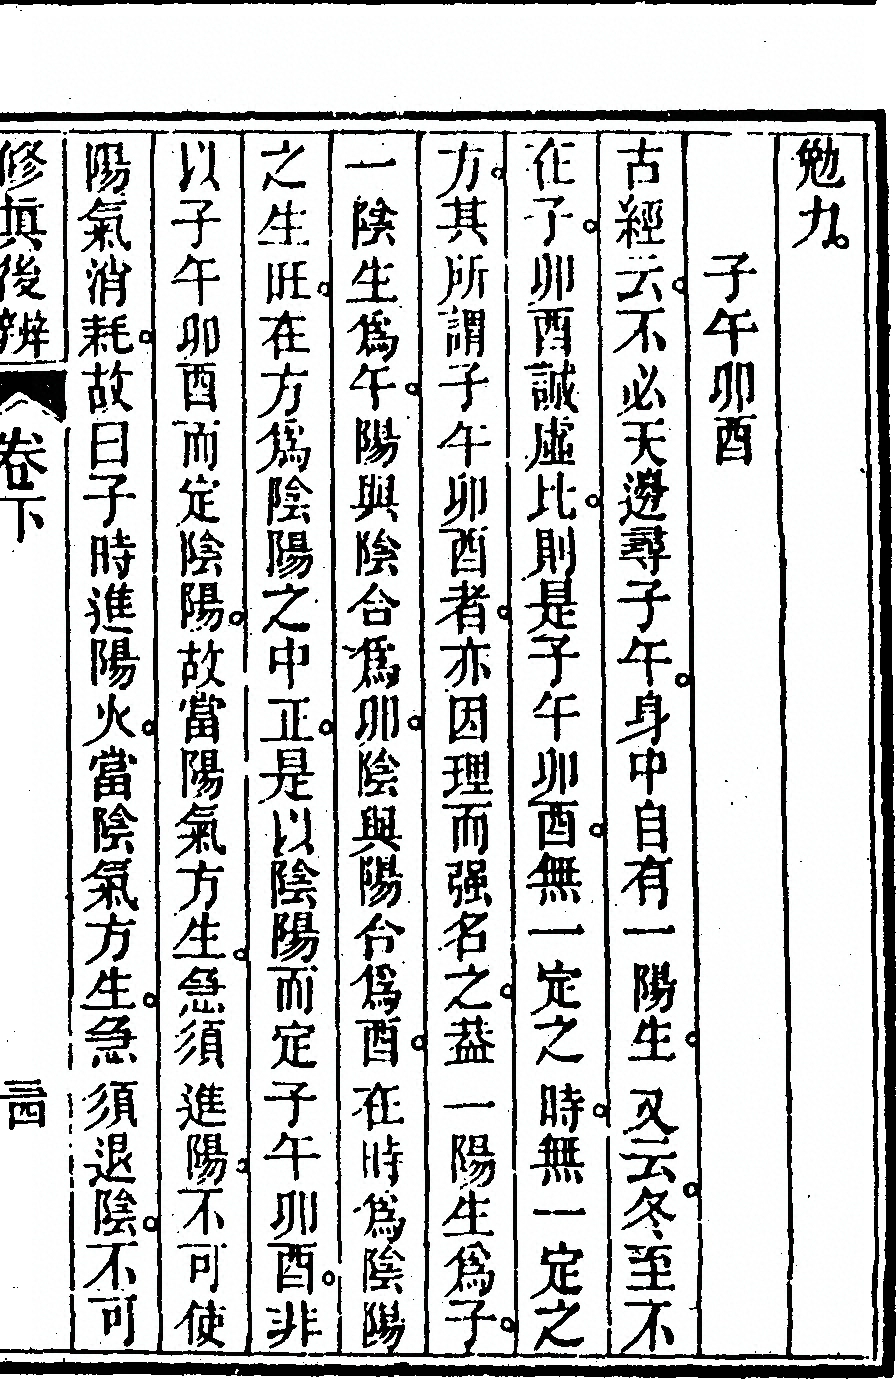 勉力。
子午卯酉
古經云。不必天邊尋子午。身中自有一陽生。又云。冬至不
在子。卯酉誠虛比。則是子午卯酉。無一定之時。無一定之
方。其所謂子午卯酉者。亦因理而强名之。葢一陽生爲子。
一陰生爲午。陽與陰合爲卯。陰與陽合爲酉。在時爲陰陽
之生旺。在方爲陰陽之中正。是以陰陽而定子午卯酉。非
以子午卯酉而定陰陽。故當陽氣方生。急須進陽。不可使
陽氣消耗。故曰子時進陽火。當陰氣方生。急須退陰。不可
修真後辨 卷下 三四